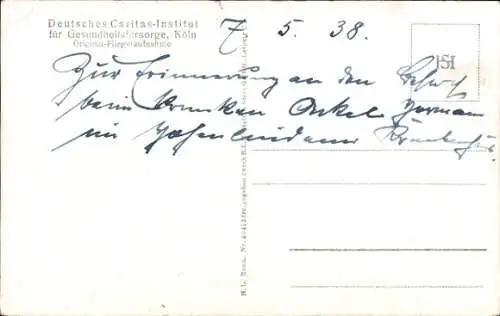 Deutsches Caritas-Institut
für Gesundheitsfürsorge, Köln
Original-Fliegeraufnahme
7. 5. 38.
Zur Erinnerung an den Besuch
beim kranken Onkel Hermann
im Hohenlindener Krankenhaus.